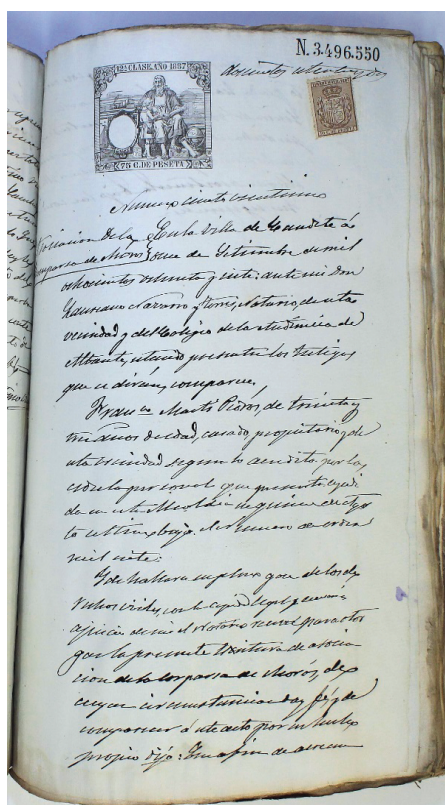 N. 3.496.550
12ª CLASE. AÑO 1887
75 C. DE PESETA
doscientos setenta y
Numero ciento veintiuno
de la
comparsa de Moros
En la villa de Caudete á
once de Setiembre de mil
ochocientos ochenta y siete: ante mi Don
Navarro y Torres, Notario de esta
vecindad y del Colegio de la Audiencia de
Albacete, estando presentes los testigos
que se dirán, comparece,
Franco Martí de treinta y
tres años de edad, casado, propietario y de
esta vecindad segun lo acredita por la
cedula personal que presenta
da en esta Alcaldia en quince de Agos
to ultimo bajo el numero de orden
mil siete:
Y de hallarse en pleno goce de los de
rechos civiles, con la capacidad legal
á juicio de mi el Notario para otor
gar la presente Escritura de asocia
cion de la comparsa de Moros, de
cuyas circunstancias doy fé, y de
comparecer á este acto por su
propio dijo: Que á fin de